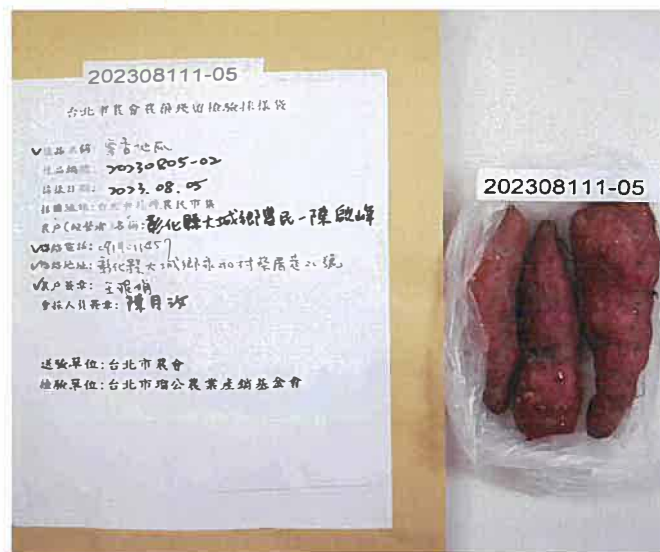 202308111-05
台北市農會農藥殘留檢驗採樣袋
樣品名稱: 蜜香地瓜
樣品編號: 20230805-02
採樣日期: 2023.08.05
農民市集
農戶(經營者)名稱: 彰化縣大城鄉農民-陳啟峰
聯絡電話:
聯絡地址: 彰化縣大城鄉永和村
農戶簽章: 王
會採人員簽章: 陳月
送驗單位:台北市農會
檢驗單位:台北市瑠公農業產銷基金會
202308111-05